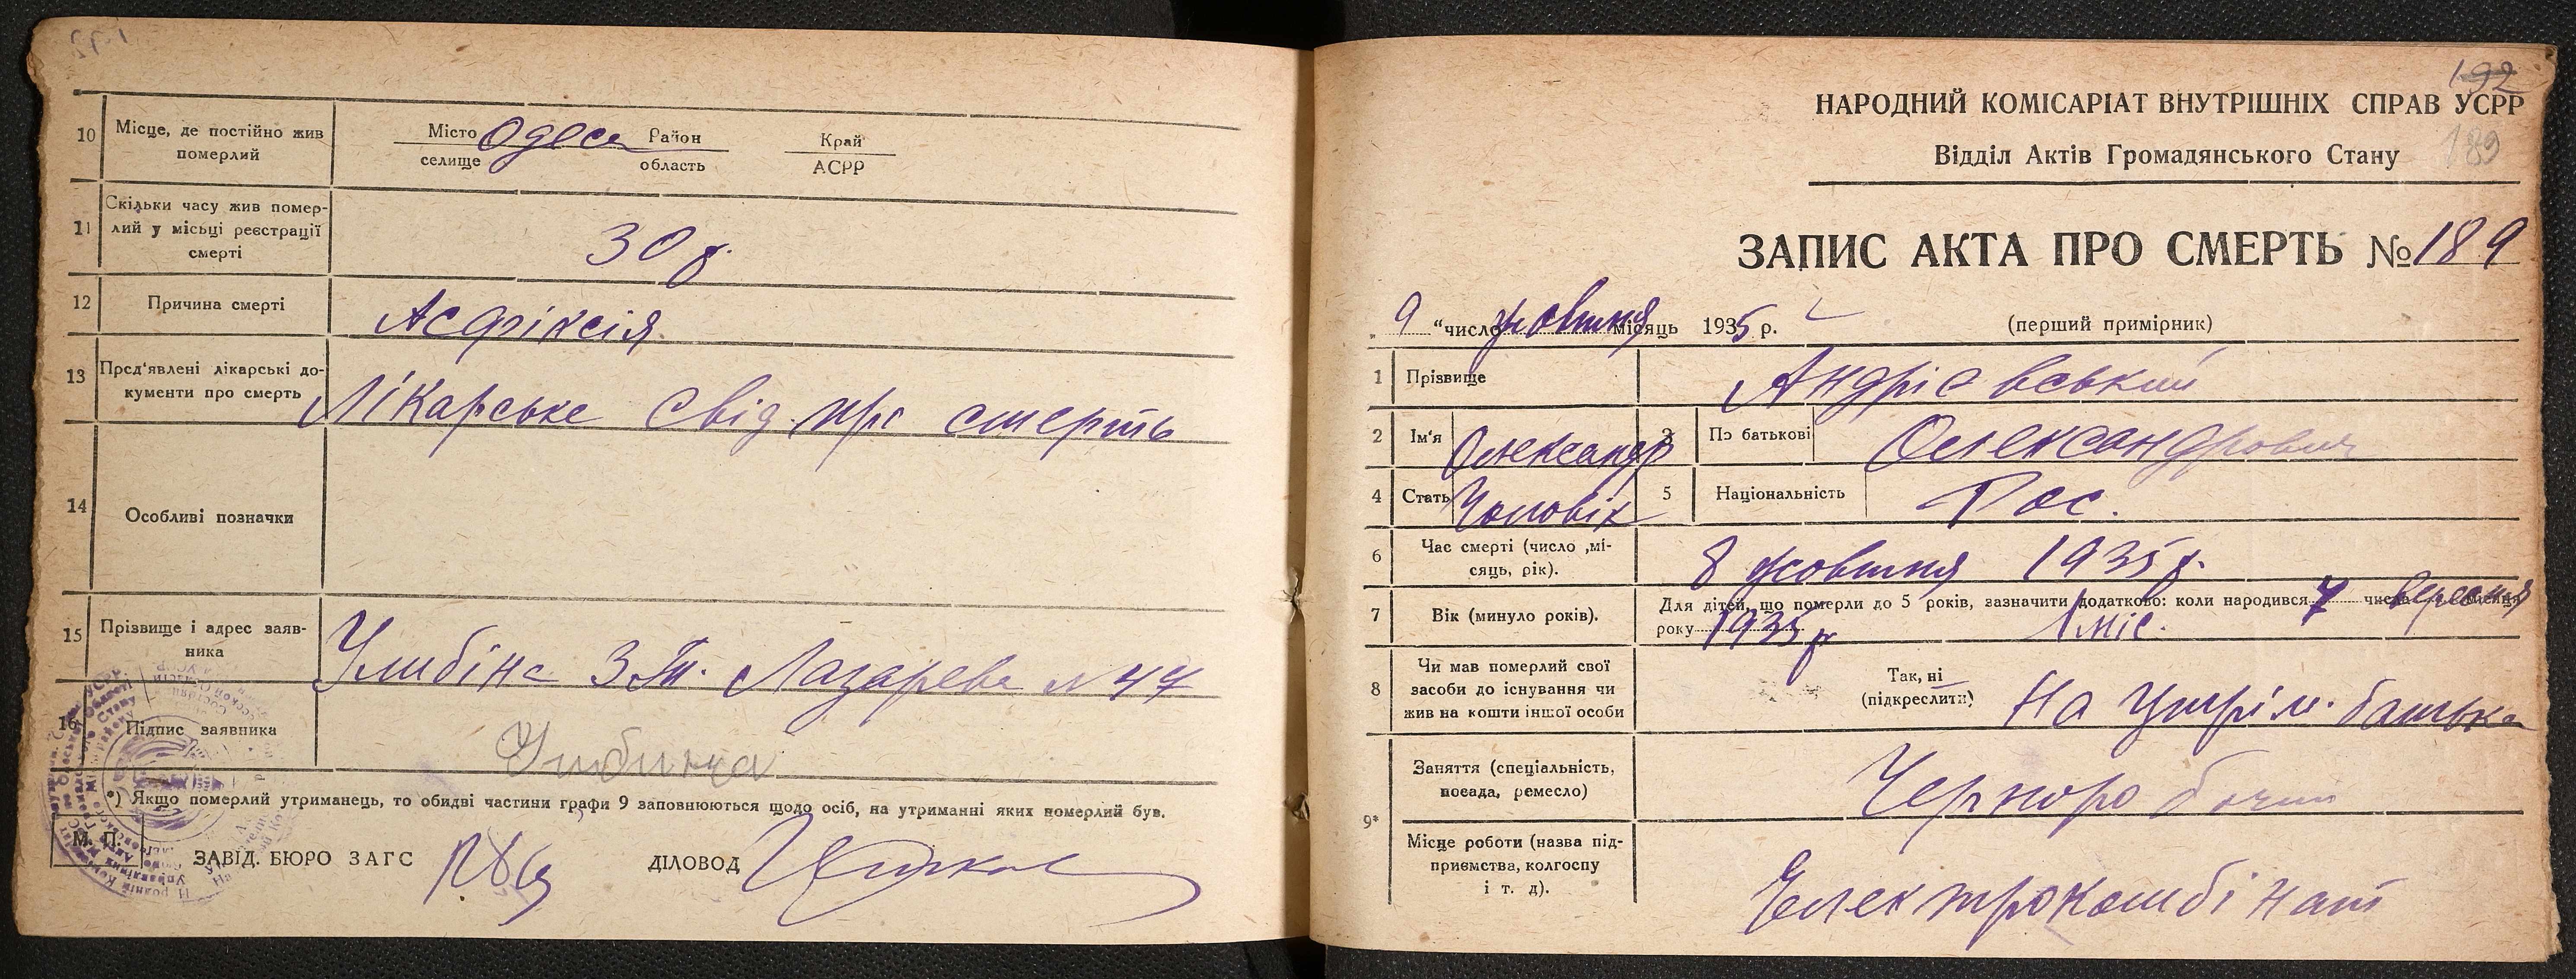 10 Місце, де постійно жив
померлий
Місто Одеса Район Край
селище область АСРР
11 Скільки часу жив помер-
лий у місьці реєстрації
смерті
30 р.
12 Причина смерті Асфіксія
13 Пред'явлені лікарські до-
кументи про смерть
Лікарське свід. про смерть
14 Особливі позначки
15 Прізвище і адрес заяв-
ника
Лазарева № 47
16 Підпис заявника
*) Якщо померлий утриманець, то обидві частини графи 9 заповнюються щодо осіб, на утриманні яких померлий був.
М. П.
ЗАВІД. БЮРО ЗАГС ДІЛОВОД
192
НАРОДНИЙ КОМІСАРІАТ ВНУТРІШНІХ СПРАВ УСРР
189
Відділ Актів Громадянського Стану
ЗАПИС АКТА ПРО СМЕРТЬ № 189
„ 9 “ число жовтня місяць 1935 р. (перший примірник)
1 Прізвище Андрієвський
2 Ім'я Олександр 3 По батькові Олександрович
4 Стать Чоловік 5 Національність Рос.
6 Час смерті (число ,мі-
сяць, рік).
8 жовтня 1935 р.
7 Вік (минуло років).
Для дітей, що померли до 5 років, зазначити додатково: коли народився 7 числа вересня місяця
року 1935 р 1 міс.
8 Чи мав померлий свої
засоби до існування чи
жив на кошти іншої особи
Так, ні
(підкреслити)
На утрім. батька
9* Заняття (спеціальність,
посада, ремесло)
Чорноробочий
Місце роботи (назва під-
приємства, колгоспу
і т. д).
Електрокомбінат